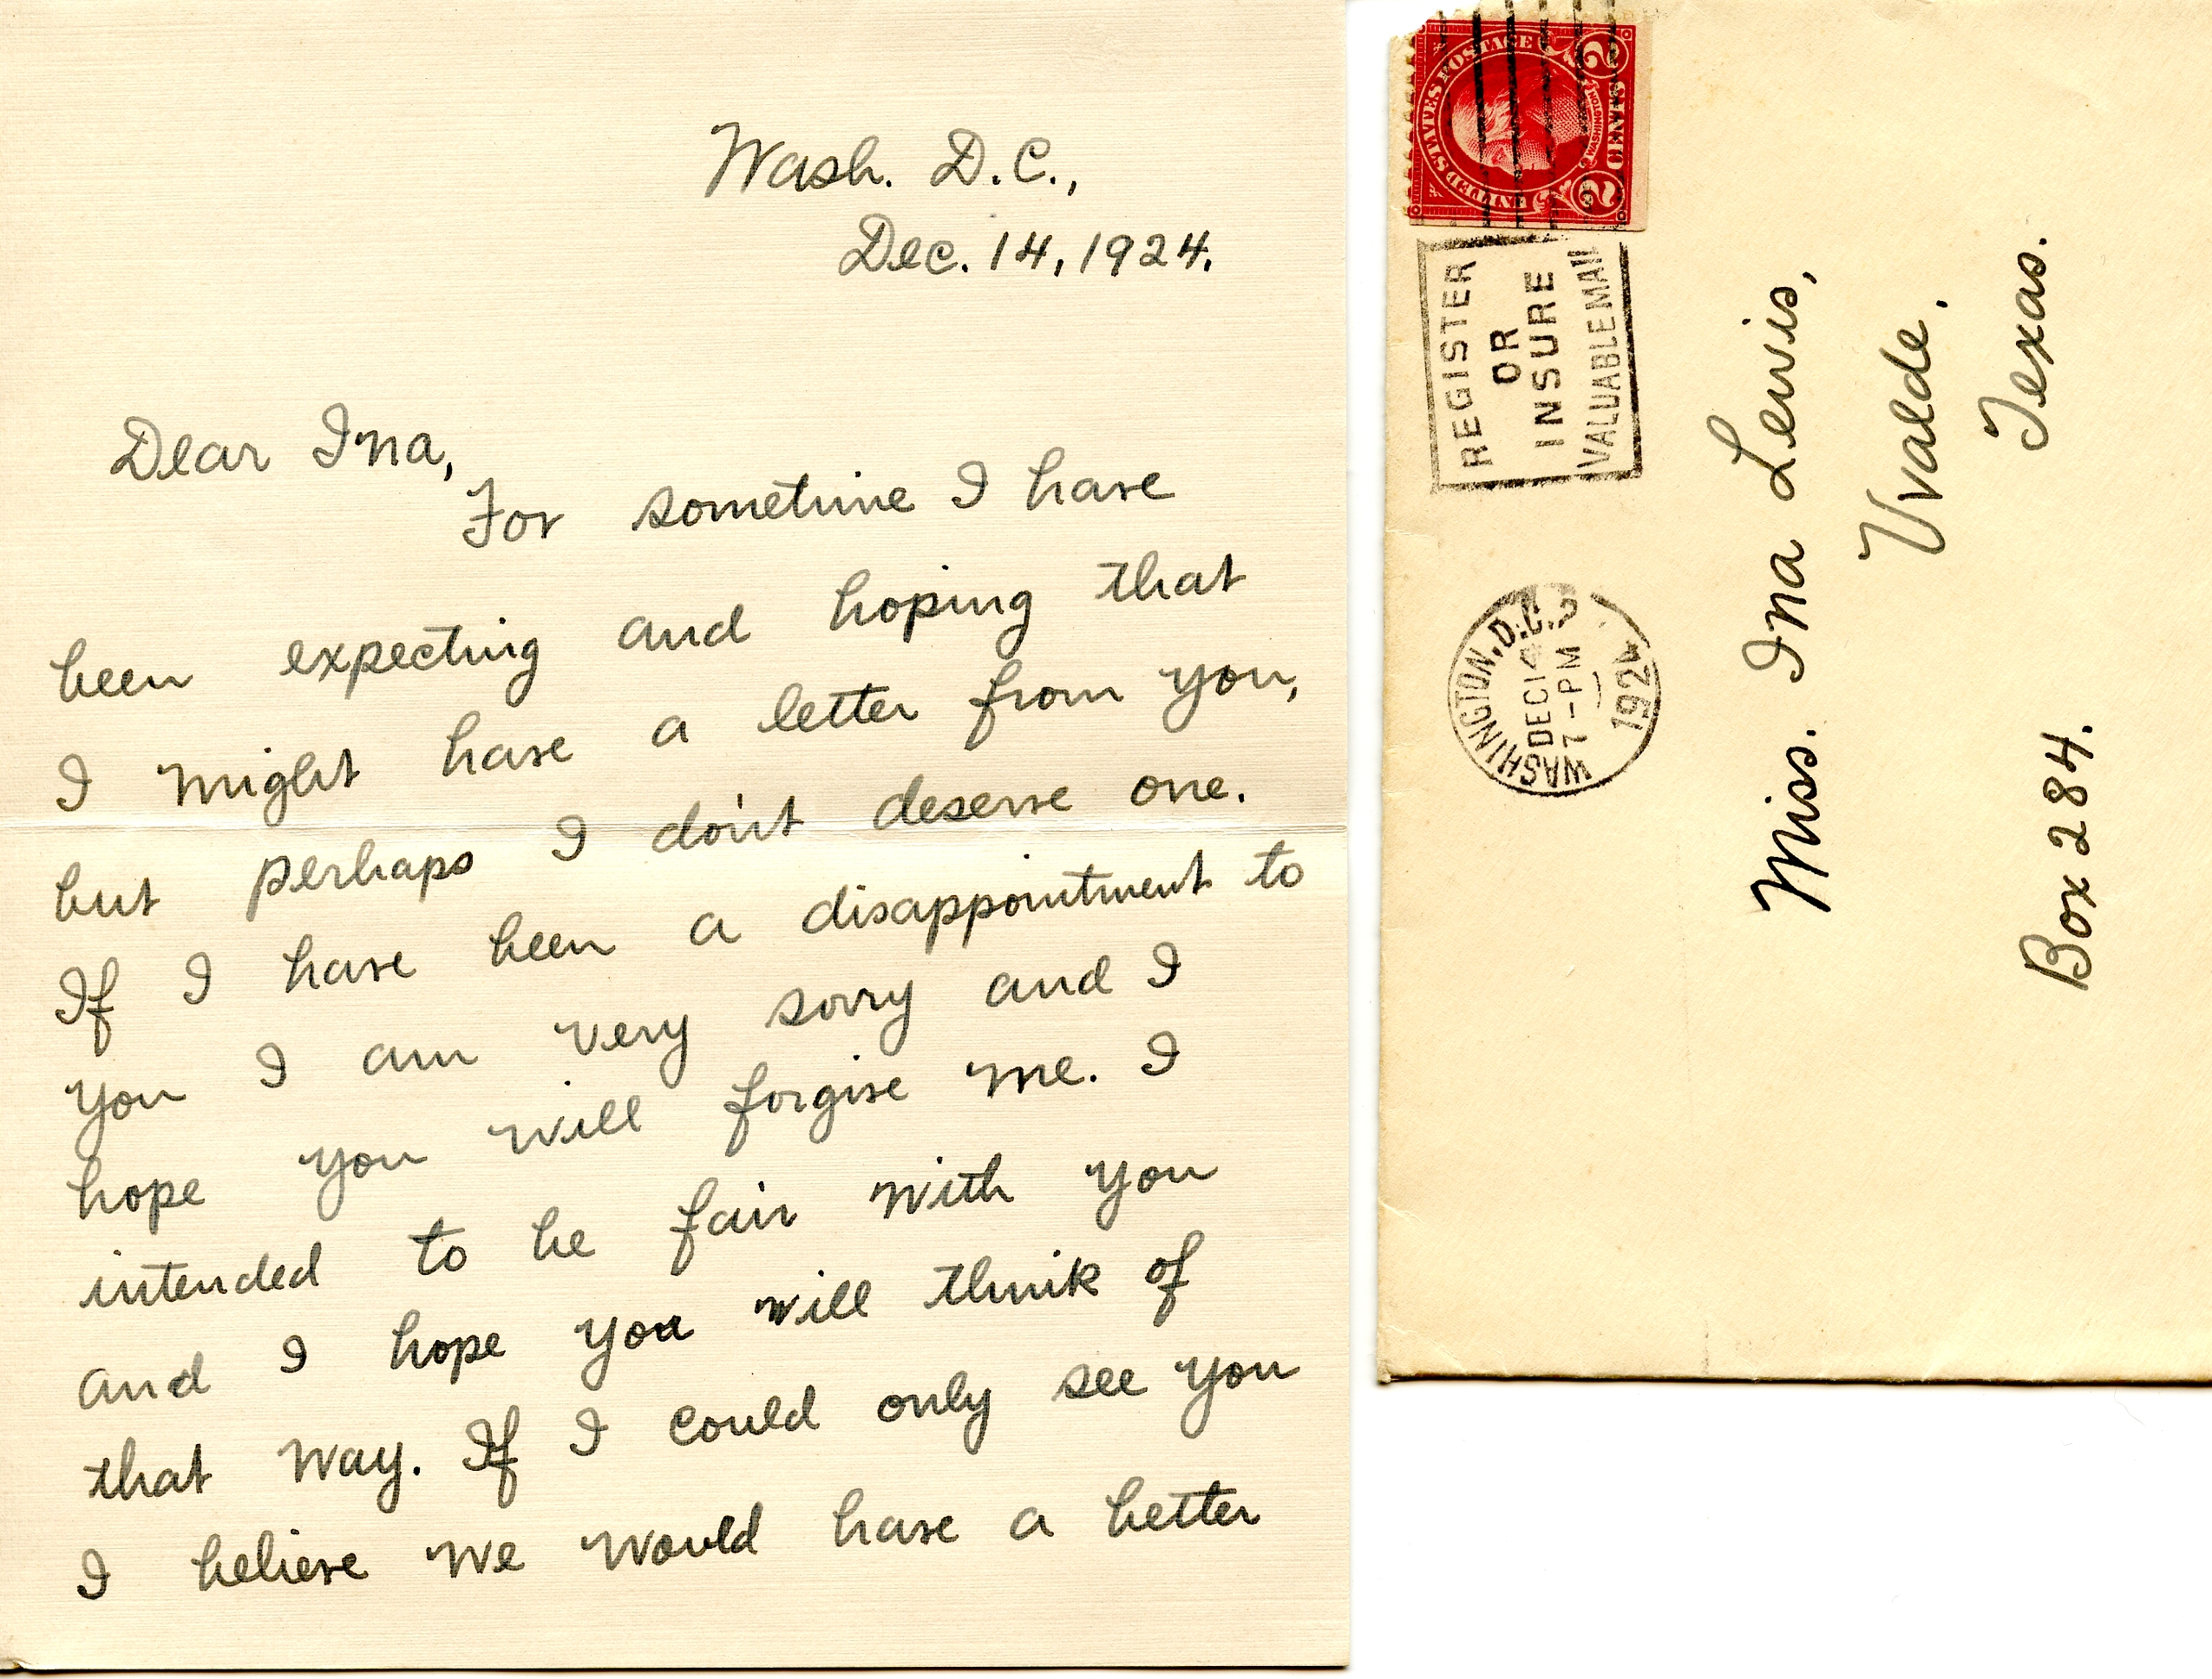 Wash. D.C.,
Dec. 14, 1924.
Dear Ina,
For sometime I have
been expecting and hoping that
I might have a letter from you,
but perhaps I don't deserve one.
If I have been a disappointment to
you I am very sorry and I
hope you will forgive me. I
intended to be fair with you
and I hope you will think of
that way. If I could only see you
I believe we would have a better
UNITED STATES POSTAGE
WASHINGTON
2 CENTS 2
REGISTER
OR
INSURE
VALUABLE MAIL
WASHINGTON, D.C.
DEC 14
7 - PM
1924
Miss. Ina Lewis,
Uvalde,
Box 284. Texas.